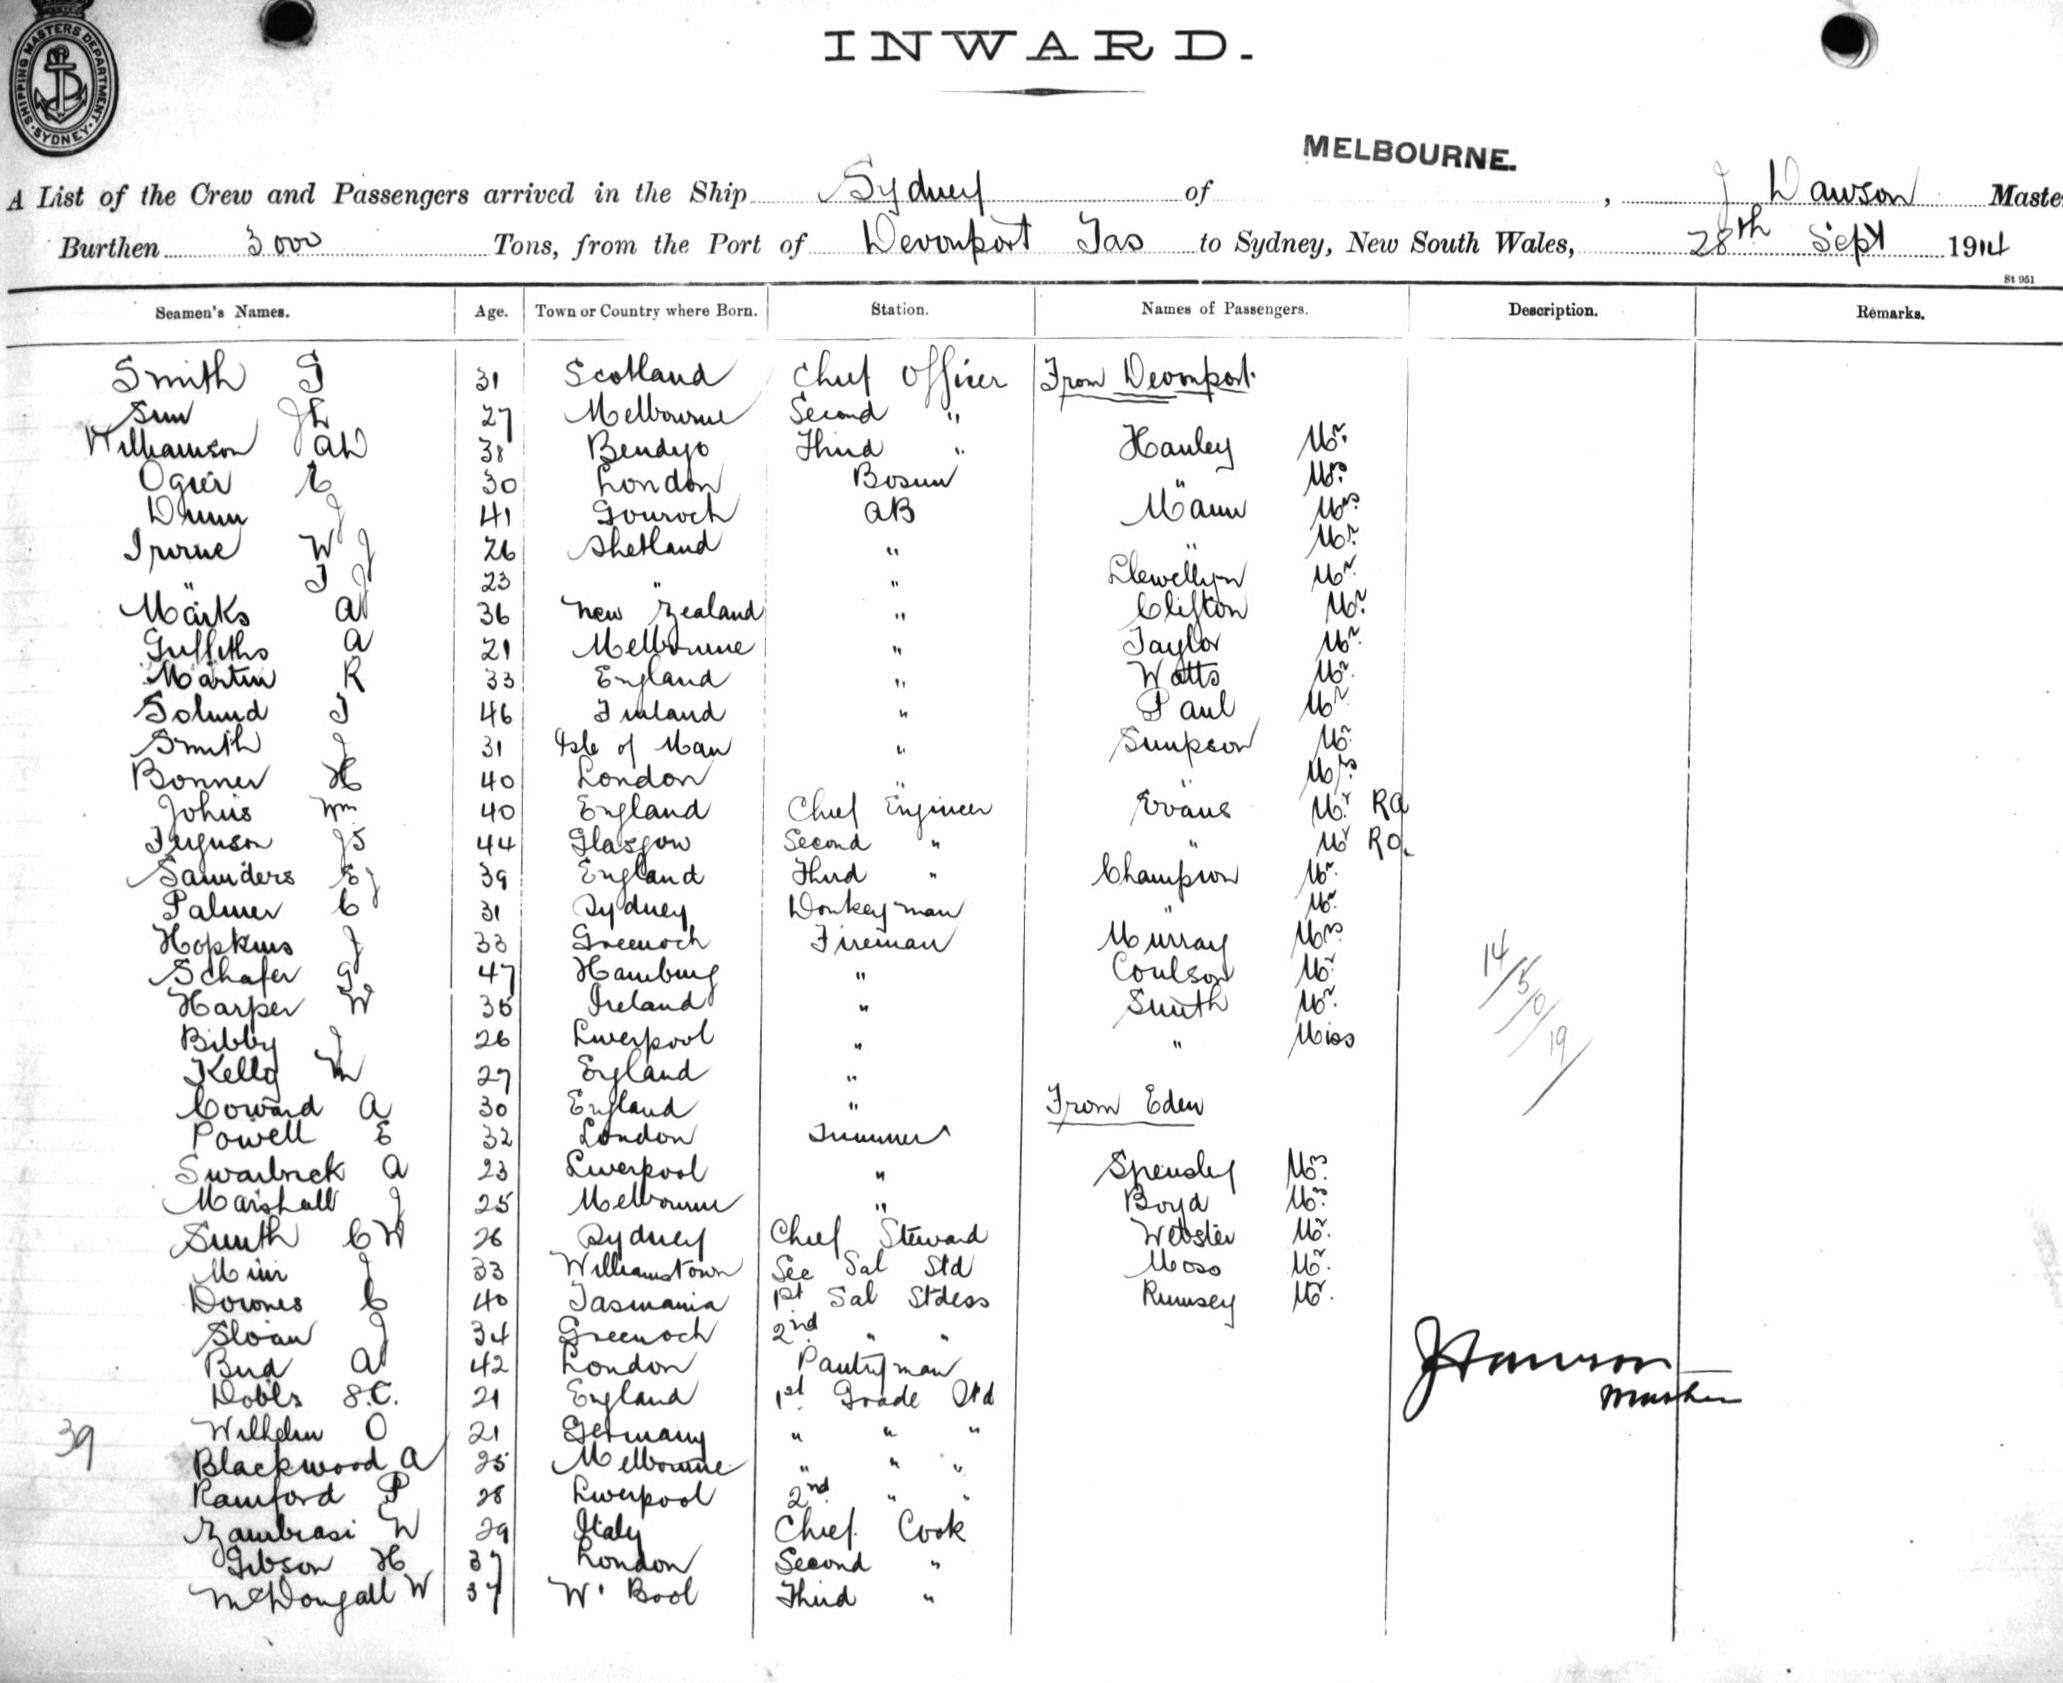 SHIPPING MASTERS DEPARTMENT SYDNEY
INWARD.
MELBOURNE.
A List of the Crew and Passengers arrived in the Ship Sydney of , J Dawson Maste
Burthen 3000 Tons, from the Port of Devonport Tas to Sydney, New South Wales, 28th Sept 1914
St 951
Seamen's Names. Age. Town or Country where Born. Station. Names of Passengers. Description. Remarks.
Smith 31 Scotland Chief Officer From Devonport.
27 Melbourne Second "
Williamson 38 Bendigo Third " Hanley Mr.
Ogier 30 London Bosun " Mrs
Dunn J 41 Gourock AB Mann Mrs
Irvine W J 26 Shetland " " Mr.
" J 23 " " Llewellyn Mr.
Marks A 36 New Zealand " Clifton Mr.
Griffiths A 21 Melbourne " Taylor Mr.
Martin R 33 England " Watts Mr.
46 Finland " Paul Mr
Smith J 31 Isle of Man " Simpson Mr.
Bonner H 40 London " " Mrs
Johns Wm 40 England Chief Engineer Evans Mr. RA
Ferguson JS 44 Glasgow Second " " Mr RA.
Saunders EJ 39 England Third " Champion Mr.
Palmer C 31 Sydney Donkeyman " Mr.
Hopkins J 33 Greenock Fireman Murray Mrs
Schafer G 47 Hamburg " Coulson Mr.
Harper W 35 Ireland " Smith Mr.
Bibby J 26 Liverpool " " Miss
Kelly M 27 England "
Coward A 30 England " From Eden
Powell E 32 London Trimmer
Swarbrick A 23 Liverpool " Spensley Mrs.
Marshall J 25 Melbourne " Boyd Mrs.
Smith CW 26 Sydney Chief Steward Webster Mr.
Muir J 33 Williamstown Sec Sal Std Moss Mr.
Downes C 40 Tasmania 1st Sal Stdess Rumsey Mr.
Sloan J 34 Greenock 2nd " "
Bird A 42 London Pantryman
Dobbs S.C. 21 England 1st Grade Std
Wilhelm O 21 Germany " " "
Blackwood A 25 Melbourne " " "
Ramford P 28 Liverpool 2nd " "
Zambrasi W 29 Italy Chief Cook
Gibson H 37 London Second "
McDougall W 37 W' Bool Third "
39
14/5/0/19
J Dawson
Master